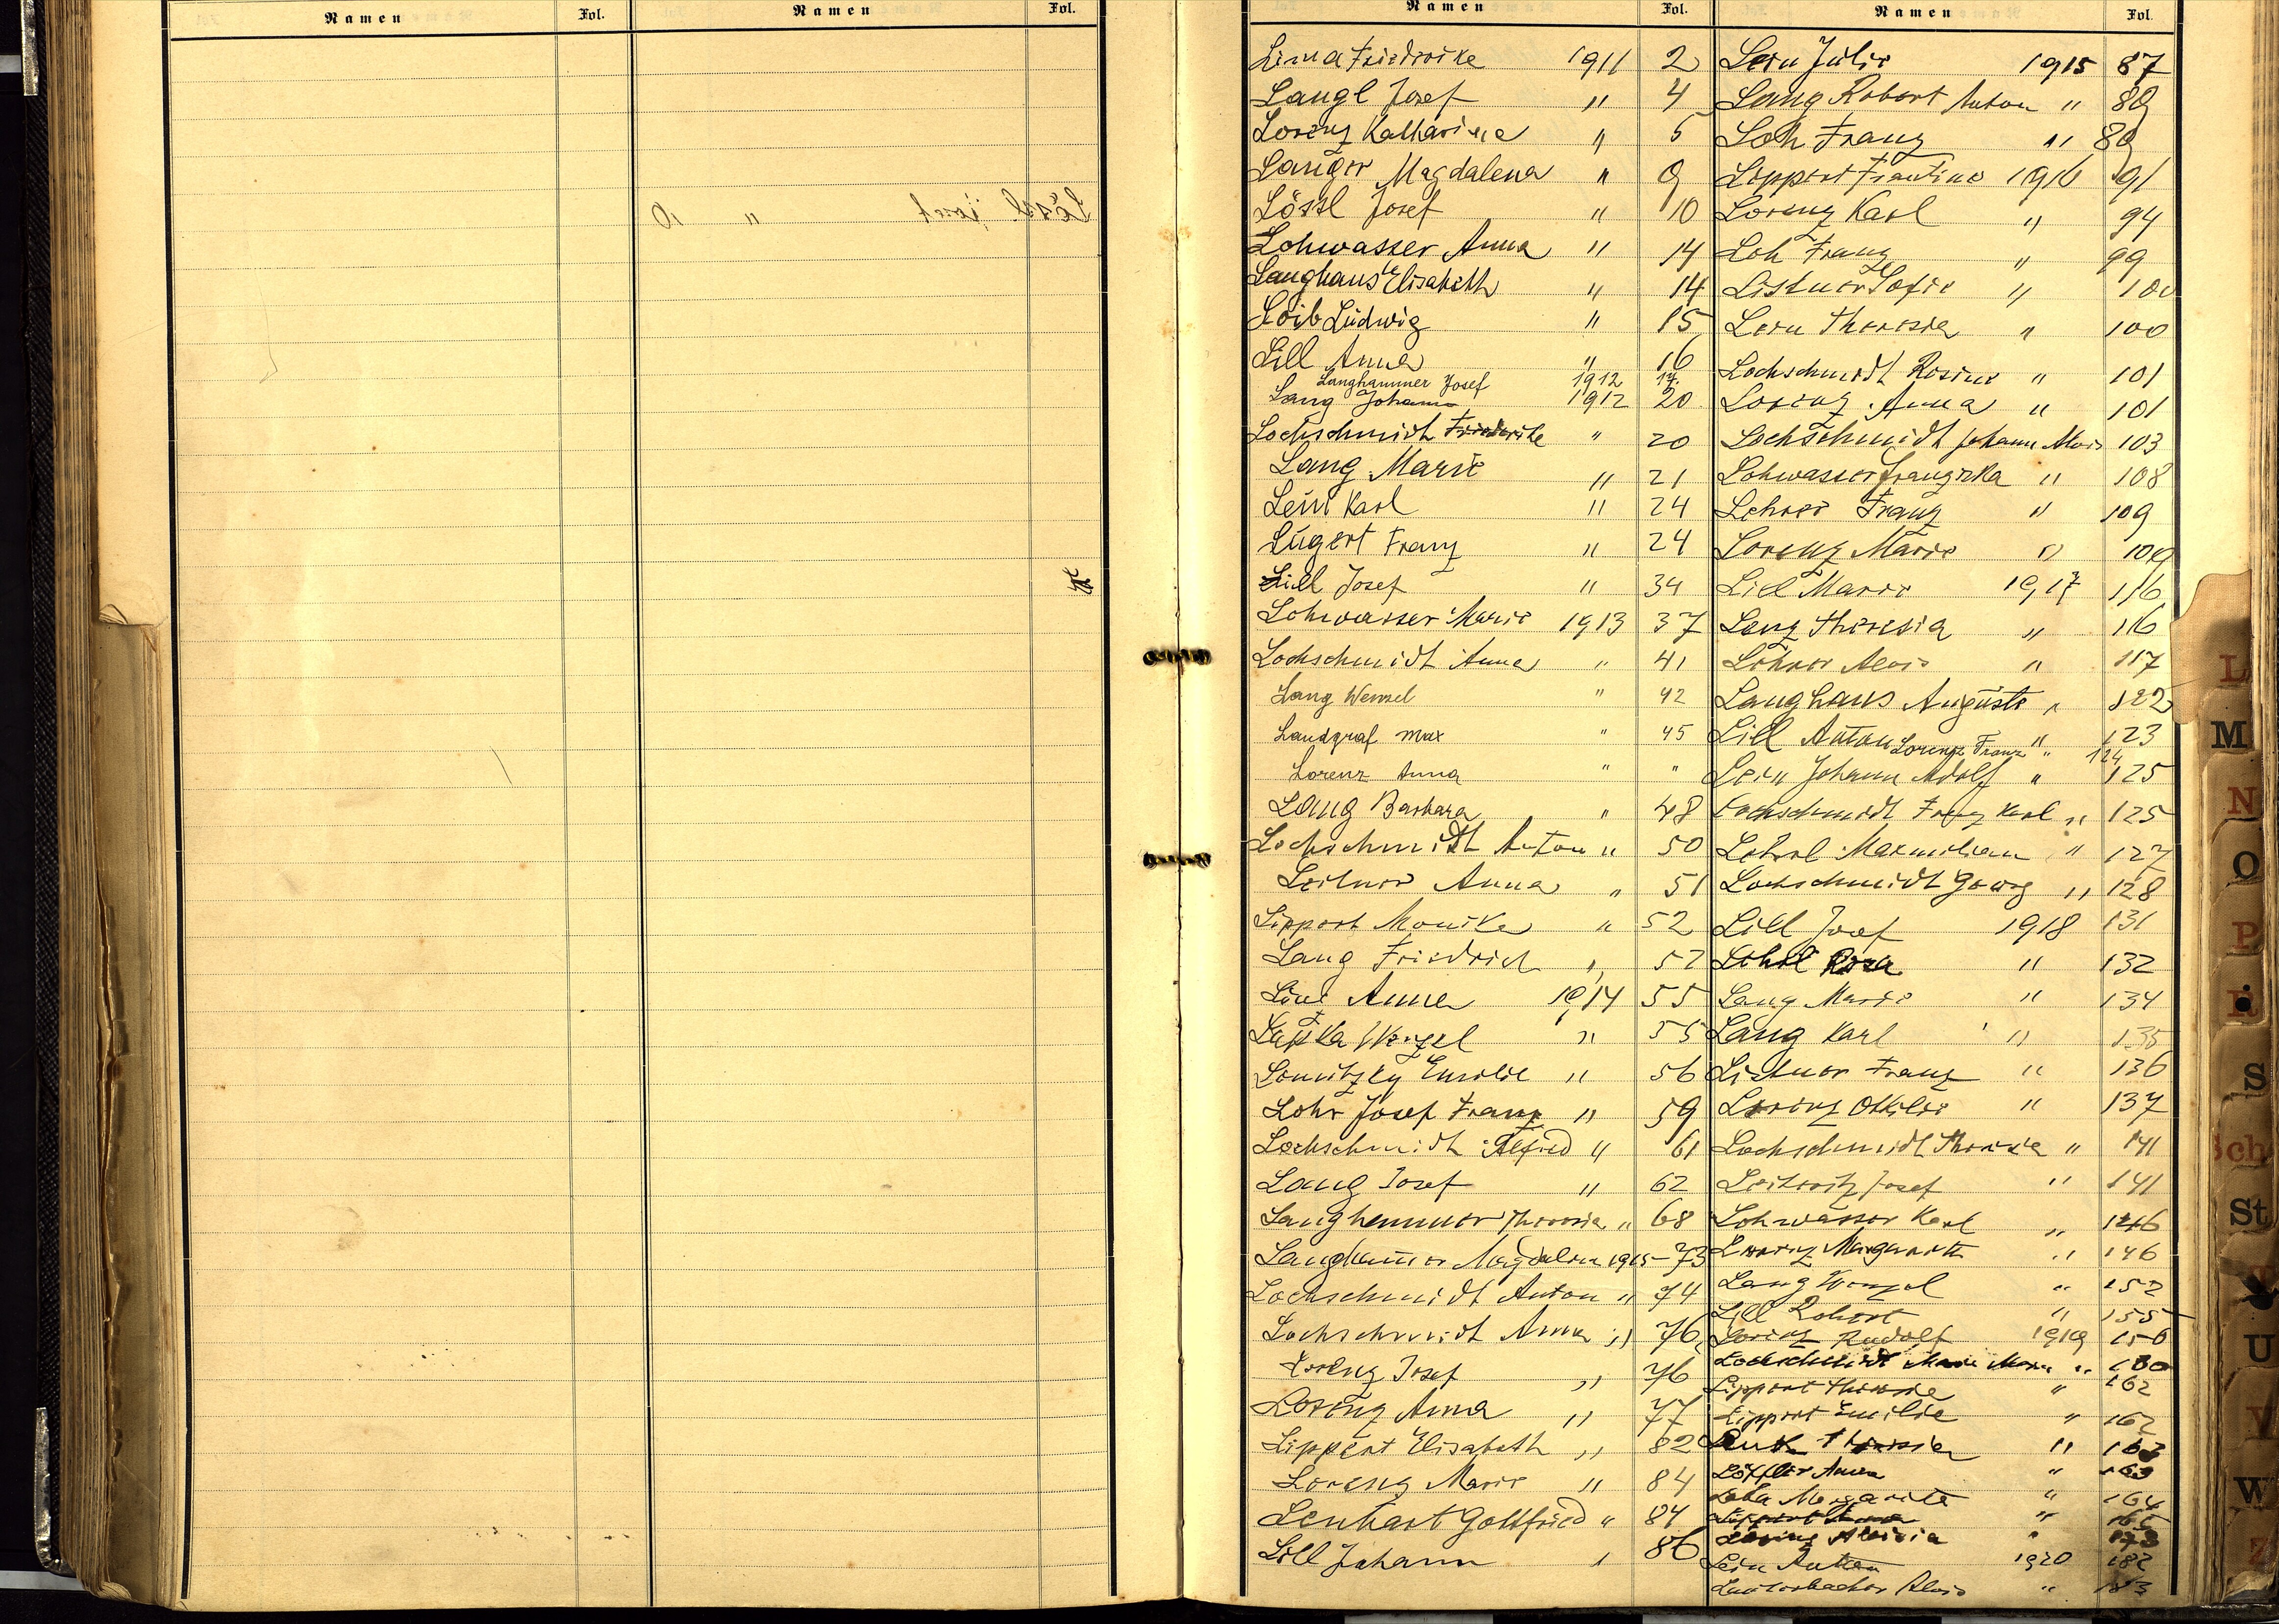 Namen Fol. Namen Fol.
Namen Fol. Namen Fol.
Lima Friedrike 1911 2
Langl Josef " 4
Lorenz Katharina " 5
Langer Magdalena " 9
Lössl Josef " 10
Lohwasser Anna " 14
Langhans Elisabeth " 14
Loib Ludwig " 15
Lill Anna " 16
Langhammer Josef 1912 17.
Lang Johann 1912 20
Lochschmidt Friederike " 20
Lang Marie " 21
Lein Karl " 24
Lugert Franz " 24
Lill Josef " 34
Lohwasser Marie 1913 37
Lochschmidt Anna " 41
Lang Wenzel " 42
Landgraf Max " 45
Lorenz Anna " "
Lang Barbara " 48
Lochschmidt Anton " 50
Leitner Anna " 51
Lippert Monika " 52
Lang Friedrich " 52
Anna 1914 55
Wenzel " 55
Emilie " 56
Lohr Josef Franz " 59
Lochschmidt Alfred " 61
Lang Josef " 62
Langhammer Theresia " 68
Langhammer Magdalena 1915 - 73
Lochschmidt Anton " 74
Lochschmidt Anna " 76
Lorenz Josef " 76
Lorenz Anna " 77
Lippert Elisabeth " 82
Lorenz Marie " 84
Lenhart Gottfried " 84
Lill Johann " 86
Lern Julie 1915 87
Lang Robert Anton " 89
Loh Franz " 89
Lippert 1916 91
Lorenz Karl " 94
Loh Franz " 99
Listner Sofie " 100
Theresia " 100
Lochschmidt Rosina " 101
Lorenz Anna " 101
Lochschmidt Johann Alois 103
Lohwasser Franziska " 108
Lehrer Franz " 109
Lorenz Marie " 109
Lill Marie 1917 116
Lang Theresia " 116
Alois " 117
Langhans Auguste " 122
Lill Anton " 123
Lorenz Franz " 124
Lein Johann Adolf " 125
Lochschmidt Franz Karl " 125
Maxmilian " 127
Lochschmidt Georg " 128
Lill Josef 1918 131
Rosa " 132
Lang Marie " 134
Lang Karl " 135
Listner Franz " 136
Lorenz Ottilie " 137
Lochschmidt Theresia " 141
Josef " 141
Lohwasser Karl " 146
Lorenz Margareta " 146
Lang Wenzel " 152
Lill Robert " 155
Lorenz Rudolf 1919 156
Lochschmidt Marie " 160
Lippert Theresie " 162
Lippert Emilie " 162
Theresia " 163
Löffler Anna " 163
Margareta " 164
Lippert " 165
Lorenz Aloisia " 173
Lein Anton 1920 182
Lauterbacher Alois " 183
L
M
N
O
P
R
S
Sch
St
U
V
W
Z